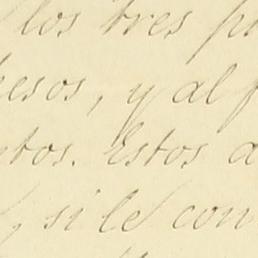 los tres
esos, y al
tos. Estos a
, si le con